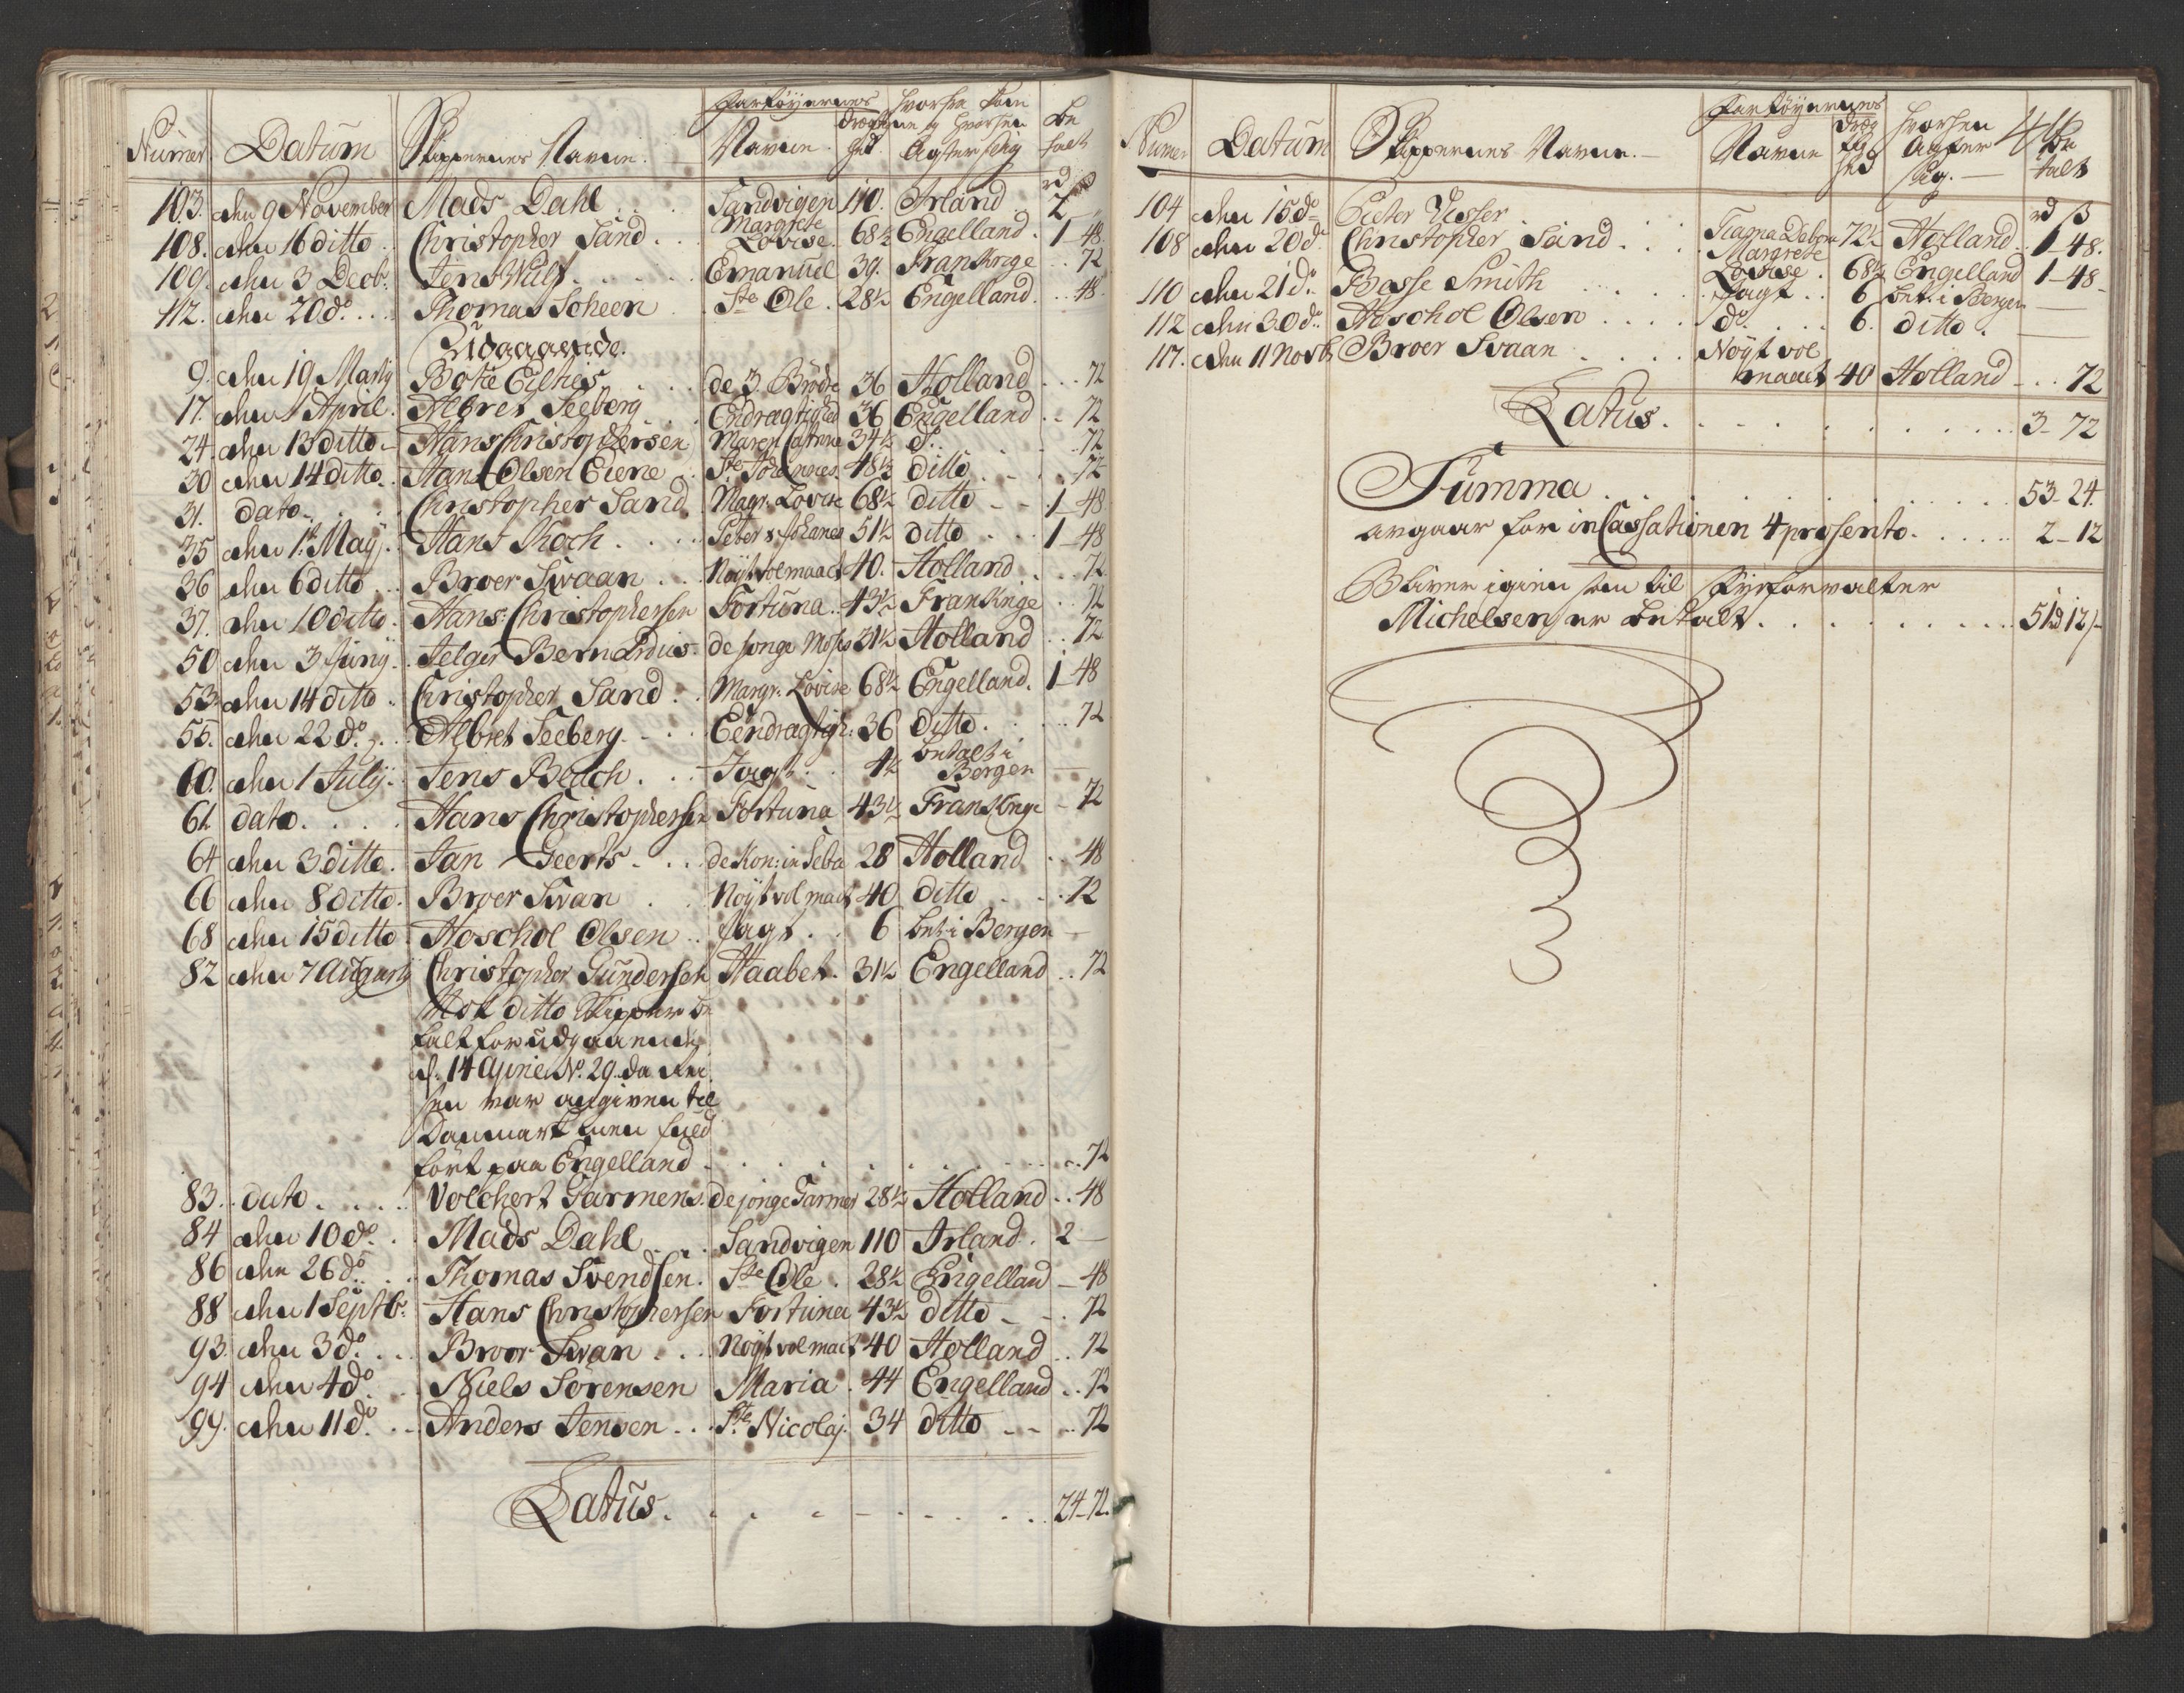 Numer Datum Skippernes Navne. Fartøyernes Navne. Drægtighed Hvorfra kom og hvorhen Agter sig Betalt
rd
103. den 9 November Mads Dahl Sandvigen 110. Irland 2
108. den 16 ditto Christopher Sand Margrete Lovise 68½ Engelland 1-48
109. den 3 Decbr. Jens Wulf Emanuel 39. Frankrige 72
112. den 20 do. Thomas Scheen Ste Ole 28½ Engelland 48
Udgaaende.
9. den 19 Martij Bote Eilkes de 3 Brødre 36 Holland 72
17. den 1 April. Albret Seeberg Endragtighed 36 Engelland 72
24. den 13 ditto Hans Christophersen Maren Catrine 34½ do. 72
30 den 14 ditto Hans Olsen Eiene Ste Johannes 48½ ditto 72
31. dato Christopher Sand Magr. Lovise 68½ ditto 1-48
35 den 1. Maij. Hans Koch Peter & Johanes 51½ ditto 1-48
36 den 6 ditto Broer Svaan Nøyt volmaact 40. Holland 72
37. den 10 ditto Hans Christophersen Fortuna 43½ Frankrige 72
50 den 3 Junij Jelger Bernardus de jonge Moses 31½ Holland 72
53. den 14 ditto Christopher Sand Margr. Lovise 68½ Engelland. 1-48
55. den 22 do. Albret Seeberg Eendragtigh: 36 ditto 72
60. den 1 Julij Jens Beach Jagt 4½ betalt i Bergen
61. dato Hans Christophersen Fortuna 43½ Frankrige 72
64 den 3 ditto. Jan Geerts de Kon: in Seba 28 Holland 48
66 den 8 ditto. Broer Svan Nøyt vol maact 40 ditto 72
68 den 15 ditto Hoschol Olsen Jagt 6 bet: i Bergen
82 den 7 Augusty Christopher Gundersen Haabet 31½ Engelland 72
Nok ditto Skipper be
talt for udgaaende
d. 14 Aprie No. 29. da Rei
sen var angiven til
Danmark men fuld
ført paa Engelland 72
83. dato Volchert Garmens de jonge Garmer 28½ Holland 48
84 den 10 do. Mads Dahl Sandvigen 110 Irland. 2
86 den 26 do Thomas Svendsen. Ste Ole 28½ Engelland 48
88 den 1 Septbr. Hans Christophersen Fortuna 43½ ditto 72
93. den 3 do. Broer Svan Nøyt vol maact 40 Holland 72
94 den 4 do. Niels Sørensen Maria 44 Engelland 72
99. den 11 do. Anders Jensen Ste Nicolaj. 34 ditto 72
Latus. 24-72.
Numer Datum Skippernes Navne. Fartøyernes Navne Drægtighed Hvorhen Agter sig. Betalt
rd ß
104 den 15 do Pieter Visser Debora 72½ Holland 1-48.
108 den 20 do Christopher Sand Margrete Lovise 68½ Engelland 1-48
110 den 21 do. Basse Smith Jagt 6 bet: i Bergen
112 den 30 do. Hoschol Olsen do 6. ditto
117. den 11 Novb. Broer Svaan Nøyt vol
maact 40 Holland 72
Latus. 3-72
Summa 53-24.
avgaar for inCassationen 4 prosento. 2-12
Bliver igien som til Fyrforvalter
Michelsen er betalt 51 rd 12 ß